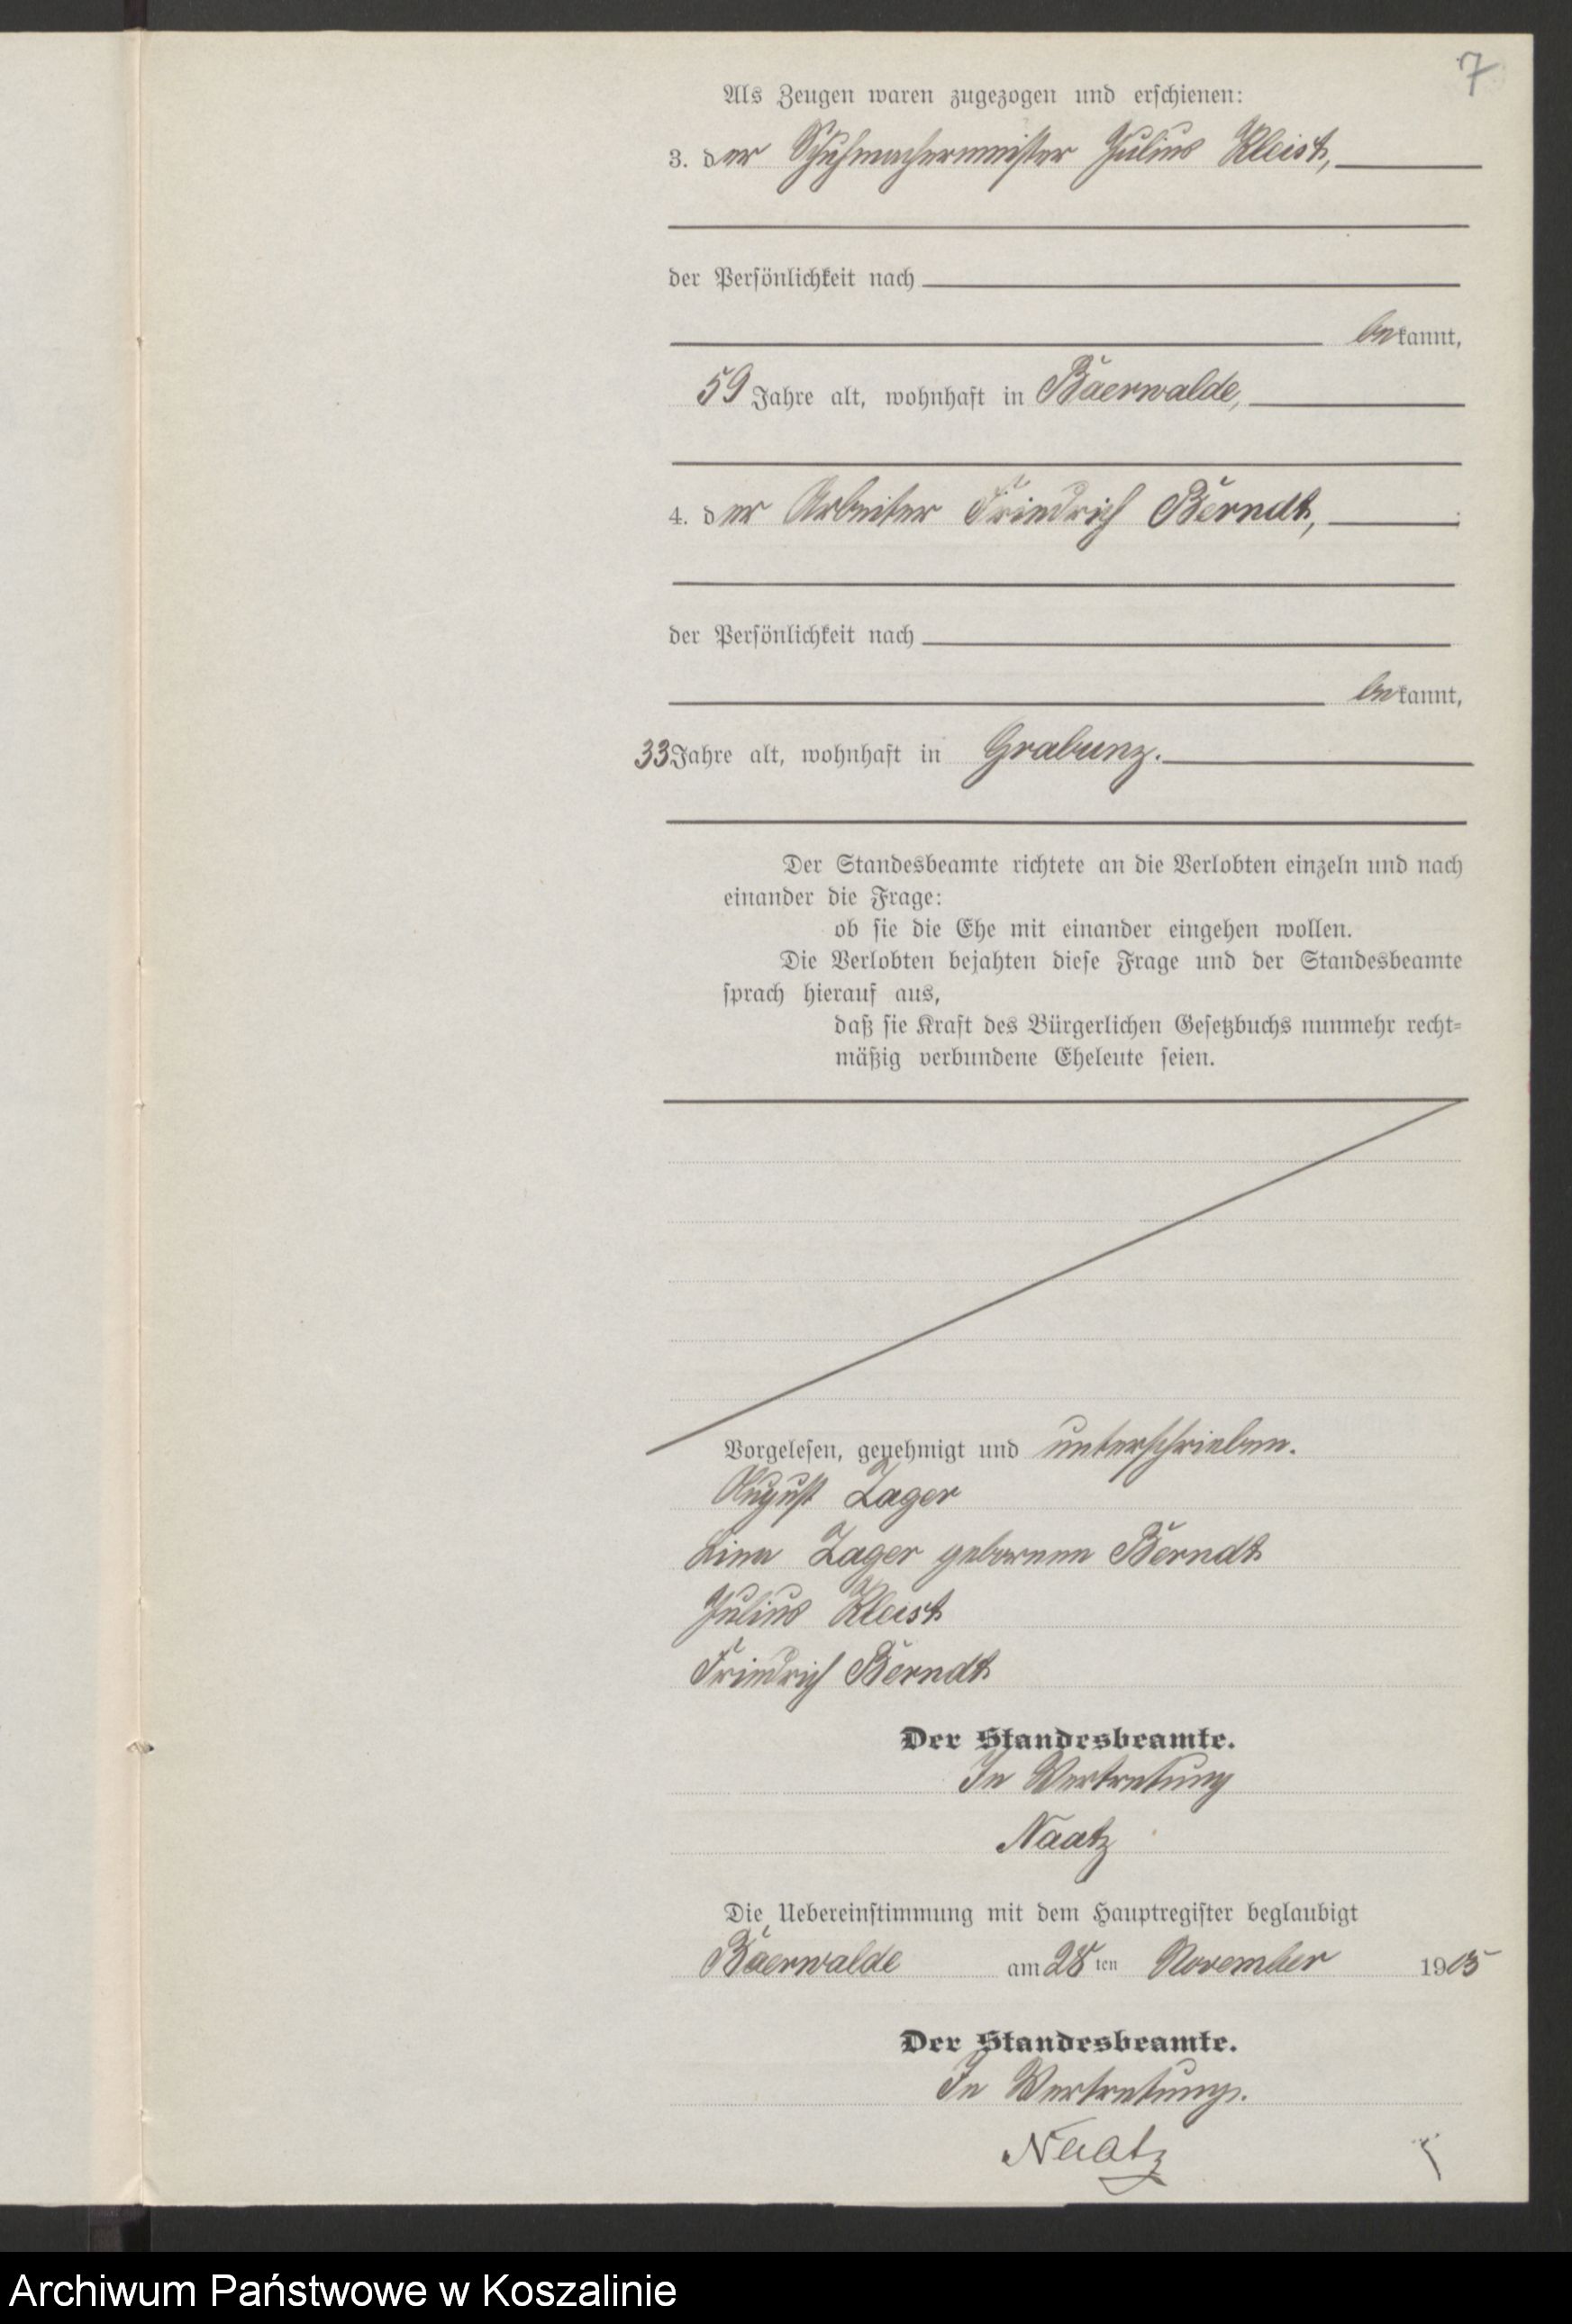 7
Als Zeugen waren zugezogen und erschienen:
3. der Schuhmachermeister Julius Kleist,
der Persönlichkeit nach
bekannt,
59 Jahre alt, wohnhaft in Baerwalde,
4. der Arbeiter Friedrich Berndt,
der Persönlichkeit nach
bekannt,
33 Jahre alt, wohnhaft in Grabunz.
Der Standesbeamte richtete an die Verlobten einzeln und nach
einander die Frage:
ob sie die Ehe mit einander eingehen wollen.
Die Verlobten bejahten diese Frage und der Standesbeamte
sprach hierauf aus,
daß sie Kraft des Bürgerlichen Gesetzbuchs nunmehr recht=
mäßig verbundene Eheleute seien.
Vorgelesen, genehmigt und unterschrieben.
August Zager
Line Zager geborenen Berndt
Julius Kleist
Friedrich Berndt
Der Standesbeamte.
In Vertretung
Naatz
Die Uebereinstimmung mit dem Hauptregister beglaubigt
Baerwalde am 28ten November 1905
Der Standesbeamte.
In Vertretung.
Naatz
Archiwum Państwowe w Koszalinie